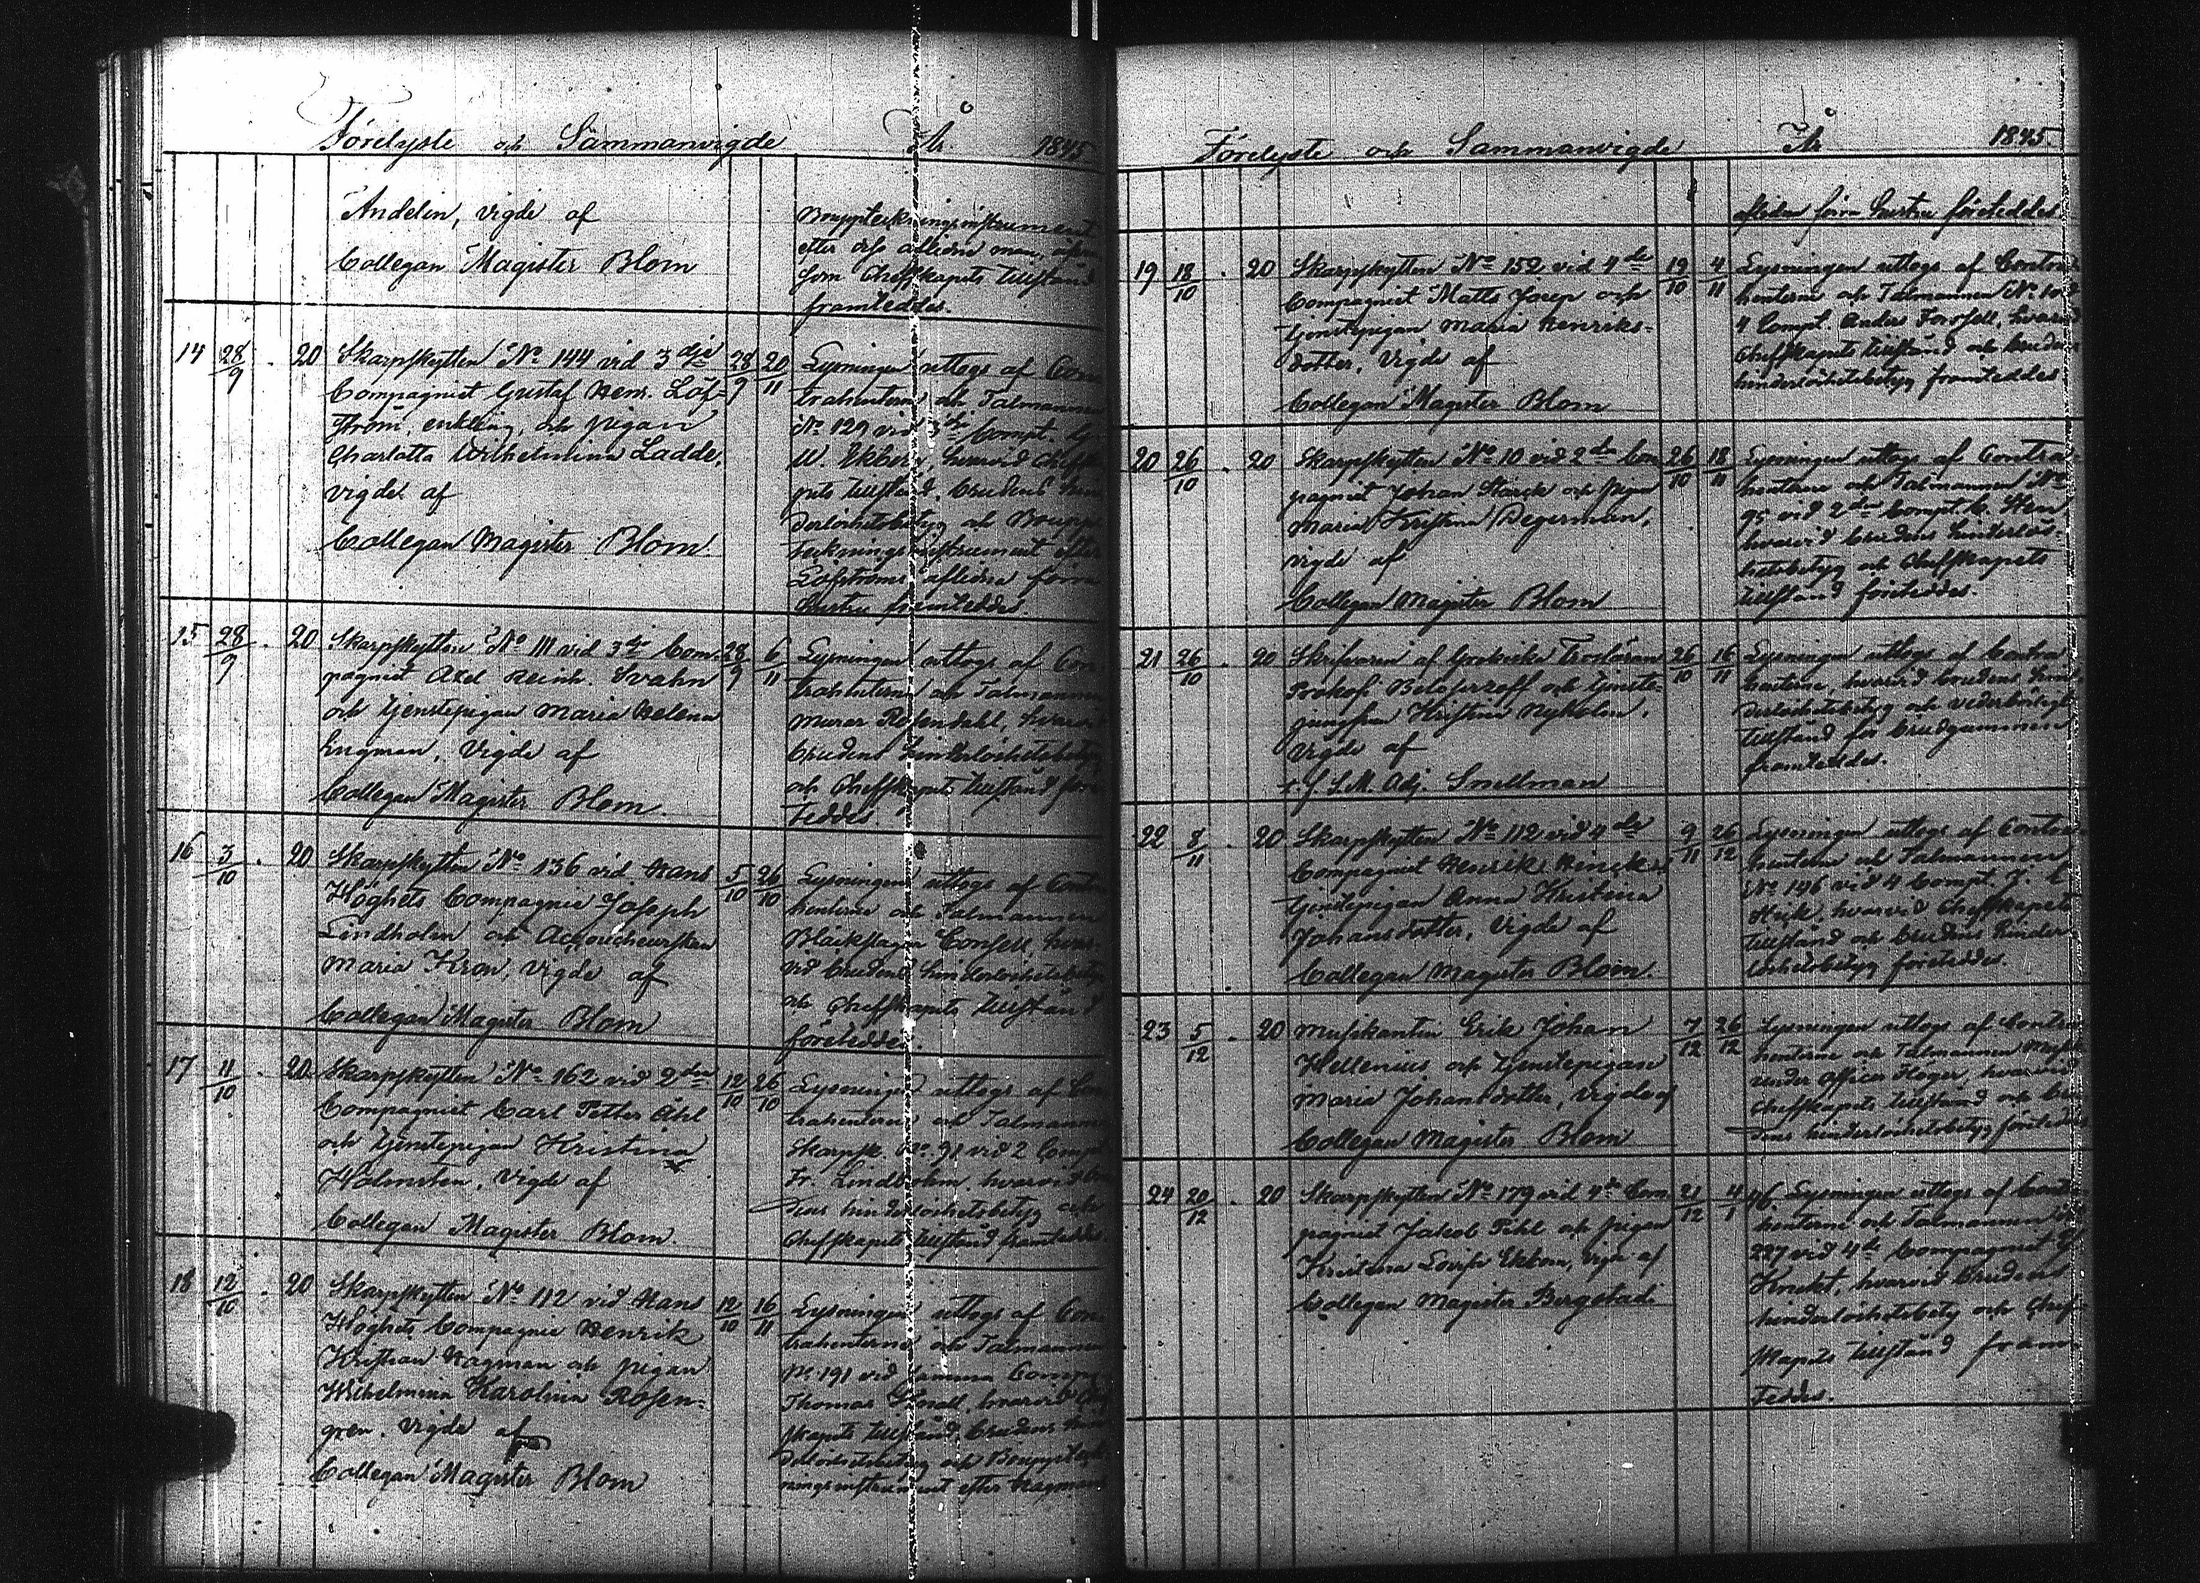 Förelyste och Sammanvigde År 1845
Andelin, vigde af
Collegan Magister Blom
Bouppteckningsinstrument
efter dess aflidne man, äfven
som Cheffskapets tillstånd
framteddes.
14 28/9 . 20 Skarpskytten No 144 vid 3dje 28/9 20/11
Compagniet Gustaf Henr. Löf-
ström, enkling, och pigan
Charlotta Wilhelmina Ladde,
vigde af
Collegan Magister Blom
Lysningen uttogs af Con-
trahenterne och Talmannen
No 129 vid Compt. G.
W. Ekberg, hvarvid Cheffska-
pets tillstånd, brudens hin-
derlöshetsbetyg och Boupp-
teckningsinstrument efter
Löfströms aflidna förra
hustru framteddes.
15 28/9 . 20 Skarpskytten No 111 vid 3dje Com- 28/9 6/11
pagniet Axel Reinh. Svahn
och tjenstepigan Maria Helena
Lugman, vigde af
Collegan Magister Blom.
Lysningen uttogs af Con-
trahenterne och Talmannen
Murar Rosendahl, hvarvid
brudens hinderlöshetsbetyg
och Cheffskapets tillstånd före-
teddes.
16 3/10 . 20 Skarpskytten No 136 vid Hans 5/10 26/10
Höghets Compagnie Joseph
Lindholm och Accoucheurskan
Maria Kron, vigde af
Collegan Magister Blom
Lysningen uttogs af Contra-
henterne och Talmannen
Bläckslagar Consell, hvar-
vid brudens hinderlöshetsbetyg
och Cheffskapets tillstånd
företeddes.
17 11/10 . 20 Skarpskytten No 162 vid 2dra 12/10 26/10
Compagniet Carl Petter Åhl
och tjenstepigan Kristina
Holmsten, vigde af
Collegan Magister Blom.
Lysningen uttogs af Con-
trahenterne och Talmannen
Skarpsk. No 91 vid 2 Compt
Fr. Lindholm, hvarvid bru-
dens hinderlöshetsbetyg och
Cheffskapets tillstånd framteddes
18 12/10 . 20 Skarpskytten No 112 vid Hans 12/10 16/11
Höghets Compagnie Henrik
Kristian Hagman och pigan
Wilhelmina Karolina Rosen-
gren, vigde af
Collegan Magister Blom
Lysningen uttogs af Con-
trahenterne och Talmannen
No 191 vid samma Comp.
Thomas hvarvid Cheff-
skapets tillstånd, brudens hin-
derlöshetsbetyg och Bouppteck-
ningsinstrument efter Hagmans
Förelyste och Sammanvigde År 1845.
aflidna förra hustru företeddes.
19 18/10 . 20 Skarpskytten No 152 vid 4de 19/10 4/11
Compagniet Matts Josep och
tjenstepigan Maria Henriks-
dotter, vigde af
Collegan Magister Blom
Lysningen uttogs af Contra-
henterne och Talmannen No
4 Compt. Anders Forssell, hvarvid
Cheffskapets tillstånd och brudens
hinderlöshetsbetyg framteddes
20 26/10 . 20 Skarpskytten No 10 vid 2dra Com- 26/10 18/11
pagniet Johan Starck och pigan
Maria Kristina Degerman,
vigde af
Collegan Magister Blom
Lysningen uttogs af Contra-
henterne och Talmannen No
95 vid 2dra Compt. C. Sten
hvarvid brudens hinderlös-
hetsbetyg och Cheffskapets
tillstånd företeddes.
21 26/10 . 20 Skrifvaren af Grekiska Trosläran 26/10 16/11
Prokofi Beloserzoff och tjenste-
jungfrun Kristina Nykolin,
vigde af
v. f. S. M. Adj. Snellman
Lysningen uttogs af Contra-
henterne, hvarvid brudens hin-
derlöshetsbetyg och vederbörligt
tillstånd för brudgummen
framteddes.
22 8/11 . 20 Skarpskytten No 112 vid 4de 9/11 26/12
Compagniet Henrik Henriks
tjenstepigan Anna Kristina
Johansdotter, vigde af
Collegan Magister Blom
Lysningen uttogs af Contra-
henterne och Talmannen
No 146 vid 4 Compt. J. C.
Hirk, hvarvid Cheffskapets
tillstånd och brudens hinder-
löshetsbetyg företeddes.
23 5/12 . 20 Musikanten Erik Johan 7/12 26/12
Hellenius och tjenstepigan
Maria Johansdotter, vigde af
Collegan Magister Blom
Lysningen uttogs af Contra-
henterne och Talmannen
under officer Hoger, hvarvid
Cheffskapets tillstånd och bru-
dens hinderlöshetsbetyg företeddes
24 20/12 . 20 Skarpskytten No 179 vid 4de Com- 21/12 4/1 46.
pagniet Jakob Pihl och pigan
Kristina Lovisa Ekbom, vigde af
Collegan Magister Bergstad
Lysningen uttogs af Contra-
henterne och Talmannen No
227 vid 4de Compagniet
Knekt, hvarvid brudens
hinderlöshetsbetyg och Cheff-
skapets tillstånd fram-
teddes.